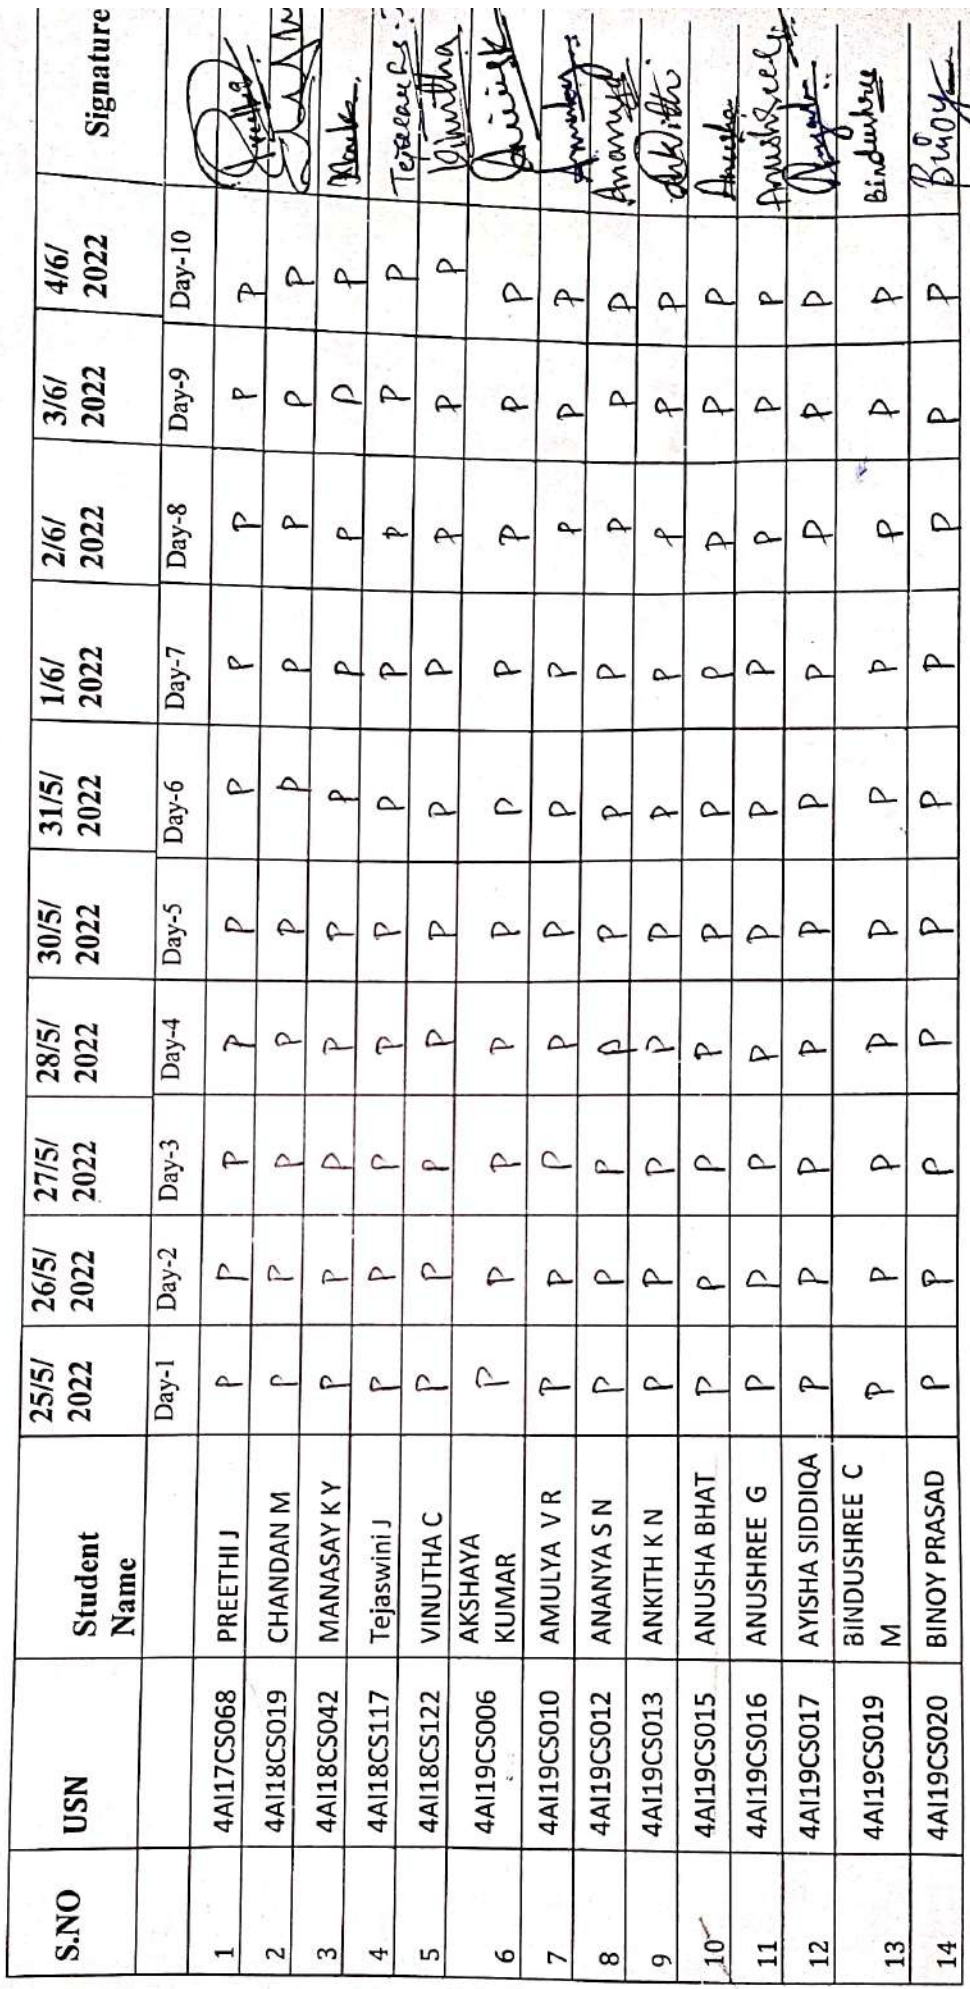 S.NO USN Student Name 25/5/2022 26/5/2022 27/5/2022 28/5/2022 30/5/2022 31/5/2022 1/6/2022 2/6/2022 3/6/2022 4/6/2022 Signature
Day-1 Day-2 Day-3 Day-4 Day-5 Day-6 Day-7 Day-8 Day-9 Day-10
1 4AI17CS068 PREETHI J P P P P P P P P P P
2 4AI18CS019 CHANDAN M P P P P P P P P P P
3 4AI18CS042 MANASAY K Y P P P P P P P P P P
4 4AI18CS117 Tejaswini J P P P P P P P P P P
5 4AI18CS122 VINUTHA C P P P P P P P P P P Vinutha
6 4AI19CS006 AKSHAYA KUMAR P P P P P P P P P P
7 4AI19CS010 AMULYA V R P P P P P P P P P P
8 4AI19CS012 ANANYA S N P P P P P P P P P P Ananya
9 4AI19CS013 ANKITH K N P P P P P P P P P P Ankith
10 4AI19CS015 ANUSHA BHAT P P P P P P P P P P Anusha
11 4AI19CS016 ANUSHREE G P P P P P P P P P P Anushree
12 4AI19CS017 AYISHA SIDDIQA P P P P P P P P P P
13 4AI19CS019 BINDUSHREE C M P P P P P P P P P P Bindushree
14 4AI19CS020 BINOY PRASAD P P P P P P P P P P Binoy